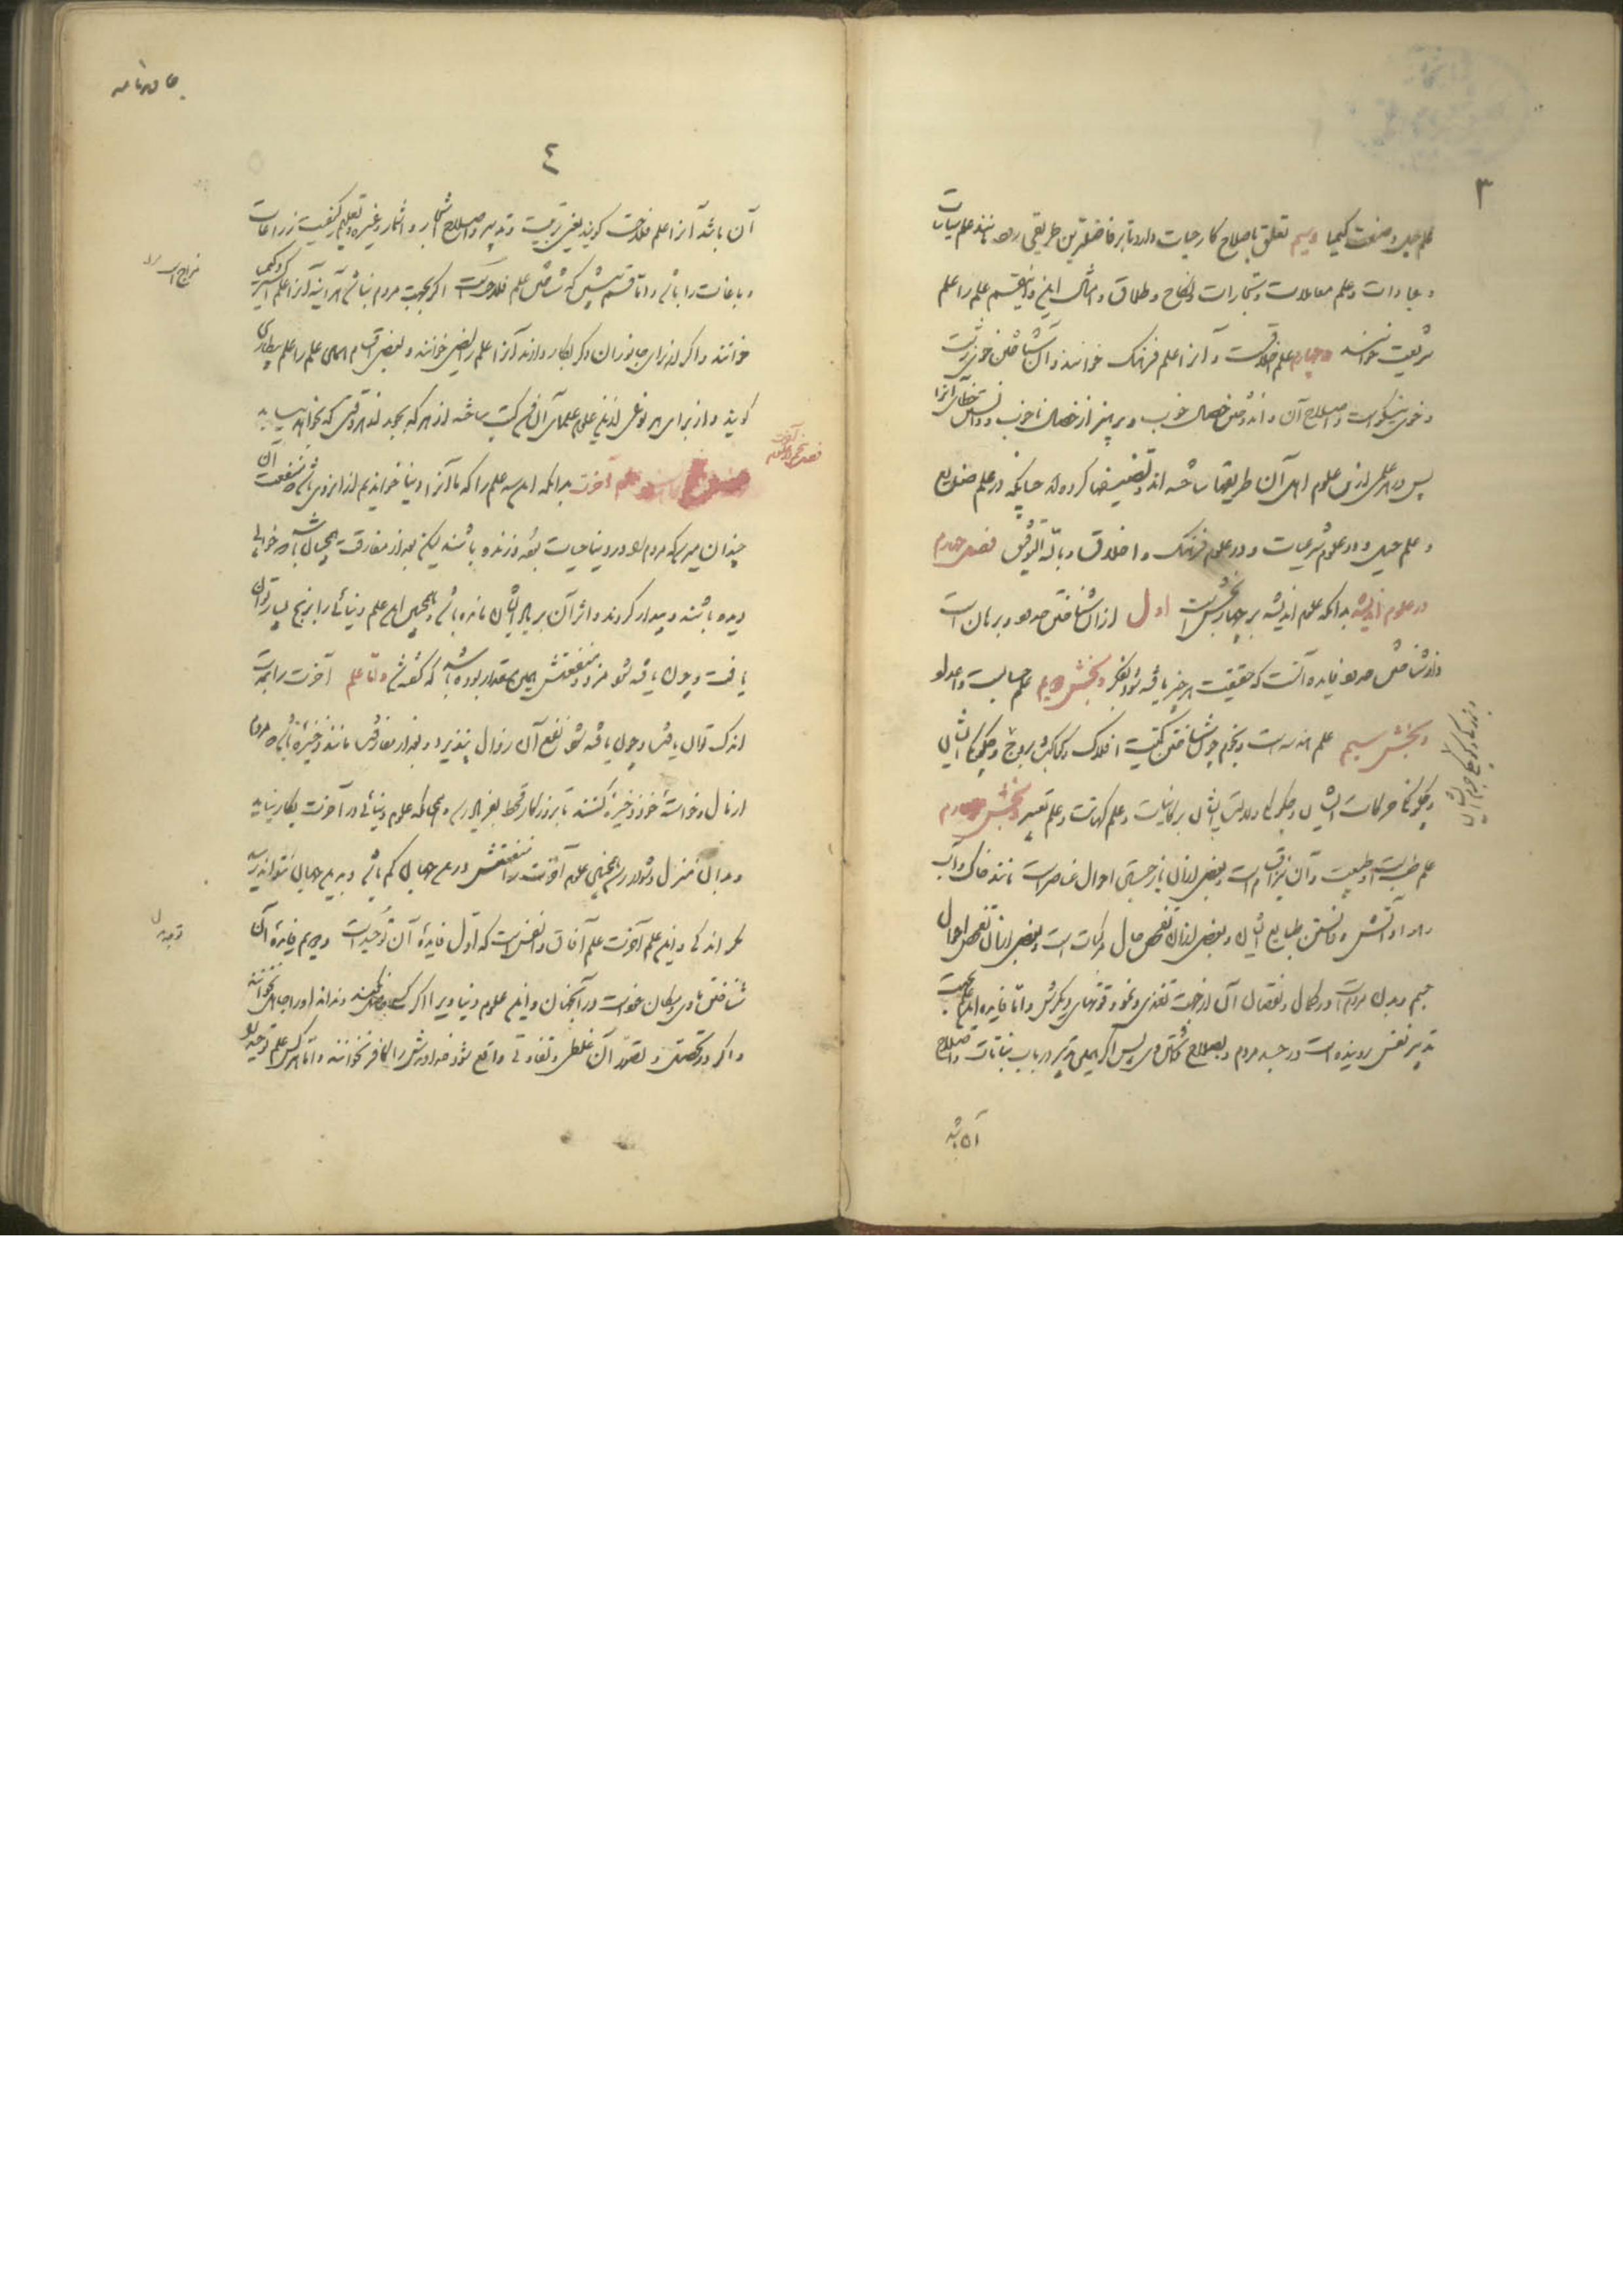 ۳
علم حیل و صنعت کیمیا و سیم تعلق باصلاح کار حیات دارد تا بر فاضلترین طریقی رود مانند علم سیاسات
و عبادات و علم معاملات و تجارات و نکاح و طلاق و امثال این و این قسم علم را علم
شریعت خوانند و چهارم علم اخلاقست و آنرا علم فرهنگ خوانند و آن شناختن خوی زشت
و خوی نیکوست و اصلاح آن و اندوختن خصال خوب و پرهیز از خصال ناخوب و دانستن
پس در هر علمی ازین علوم اهل آن طریقها ساخته اند و تصنیفها کرده اند چنانکه در علم صنایع
و علم حیل و در علوم شرعیات و در علوم فرهنگ و اخلاق و بالله التوفیق فصل چهارم
در علوم اندیشه بدانکه علوم اندیشه بر چهار بخش است اول از آن شناختن حدود و برهان است
و از شناختن حدود فایده آنست که حقیقت هر چیز یافته شود بفکر و بخش دویم علم حسابست و اعداد
و بخش سیم علم هندسه است و نجوم چون شناختن کمیت افلاک و کواکب و بروج و چگونگی ایشان
و چگونگی حرکات ایشان و دلالت ایشان بر کاینات و علم کهانت و علم تعبیر و بخش چهارم
علم طب است و طبیعت و آن نیز اقسام است و بعضی از آن بازجستن احوال عناصر است مانند خاک و آب
و هوا و آتش و دانستن طبایع ایشان و بعضی از آن تفحص حال مرکبات است و بعضی از آن تفحص احوال
جسم و بدن مردم است و در کمال و نقصان آن از جهت تغذی و نمو و قوتهای دیگرش و اما فایده این علم
تدبیر نفس روینده است در جسد مردم و بصلاح داشتن وی پس اگر همین تدبیر در باب نباتات و اصلاح
آن باشد
۴
آن باشد آنرا علم فلاحت گویند یعنی تربیت و تدبیر و اصلاح اشجار و اثمار و غیره و تعلیم کیفیت زراعات
و باغات را باشد و اما قسم پیشین که شناختن علم فلاحت است اگر بجهت مردم نباشد هر آینه آنرا علم اکسیر
خوانند و اگر از برای جانوران دگر بکار دارند آنرا علم رایض خوانند و بعضی اقسام همین علم را علم بیطاری
گویند و از برای هر نوعی ازین علوم علمای آن فن کتب ساخته اند هر که بجوید اندر وقتی که بخواهد بیابد
علم آخرت بدانکه این سه علم را که ما آنرا دنیا خواندیم از انروی باشد که منفعت آن
چندان میرسد که مردم در دنیا حیات بوند و زنده باشند لیکن بعد از مفارقت همچنان باشد که خوابی
دیده باشند و بیدار گردند و اثر آن بر ایشان مانده باشد و همچنین این علم دنیائی را برنج بسیار توان
یافت و چون یافته شود مزد و منفعتش همین مقدار بوده باشد که گفته شد و اما علم آخرت را بجهت
اندک توان یافت و چون یافته شود نفع آن زوال نپذیرد و بعد از مفارقت مانند ذخیره باشد که مردم
از مال و خواسته خود ذخیره کنند تا بروزگار قحط بفریاد رسد و همچنانکه علوم دنیائی در آخرت بکار نیاید
و بدان منزل نتواند رسید همچنین علوم آخرت را منفعتش در این جهان کم باشد و بدین جهان نتواند رسید
مگر اندکی و این علم آخرت علم آفاق و انفس است که اول فایده آن توحید است و دویم فایده آن
شناختن جاوید مکان خود است در آنجهان و این علوم دنیاویرا اگر کسی نداند او را جاهل نخوانند
و اگر در تحقیق و تصور آن غلطی و تفاوتی واقع شود خداوندش را کافر نخوانند و اما اگر کسی علم توحید